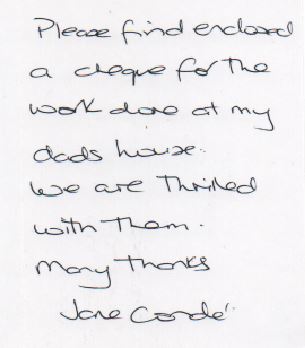 Please find enclosed
a cheque for the
work done at my
dads house.
We are Thrilled
with Them.
Many Thanks
Jane Cordé